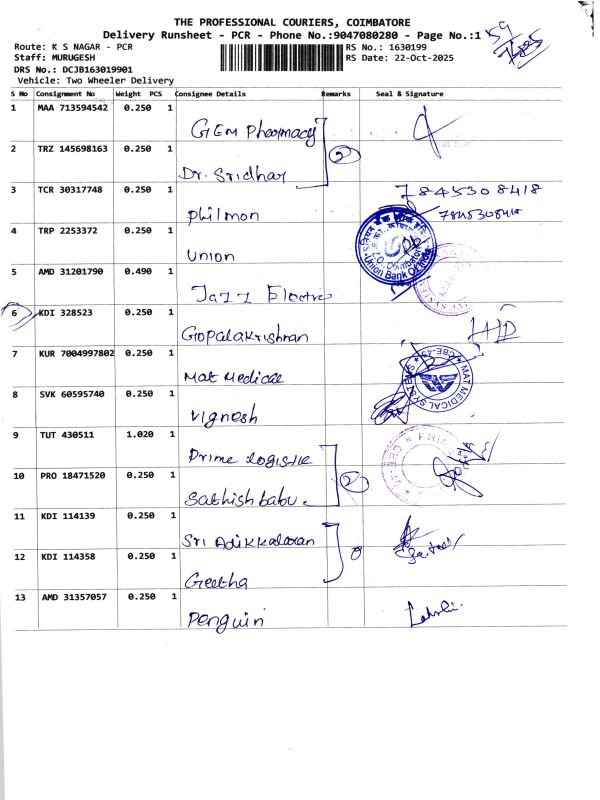 THE PROFESSIONAL COURIERS, COIMBATORE
Delivery Runsheet - PCR - Phone No.:9047080280 - Page No.:1
59
Route: K S NAGAR - PCR
RS No.: 1630199
Staff: MURUGESH
RS Date: 22-Oct-2025
DRS No.: DCJB163019901
Vehicle: Two Wheeler Delivery
S No Consignment No Weight PCS Consignee Details Remarks Seal & Signature
1 MAA 713594542 0.250 1 GEM Pharmacy
2 TRZ 145698163 0.250 1 Dr. Sridhar
2
3 TCR 30317748 0.250 1 Philmon 7845308418
7845308418
4 TRP 2253372 0.250 1 Union
Z.O. Coimbatore
Union Bank Of India
5 AMD 31201790 0.490 1 Jazz Electro
6 KDI 328523 0.250 1 Gopalakrishnan
7 KUR 7004997802 0.250 1 Mat Medical
MAT MEDICAL SYSTEMS CBE-45
8 SVK 60595740 0.250 1 Vignesh
9 TUT 430511 1.020 1 Prime Logistic
10 PRO 18471520 0.250 1 Sathish babu.
2
11 KDI 114139 0.250 1 Sri Adikkalavan
12 KDI 114358 0.250 1 Geetha
13 AMD 31357057 0.250 1 Penguin